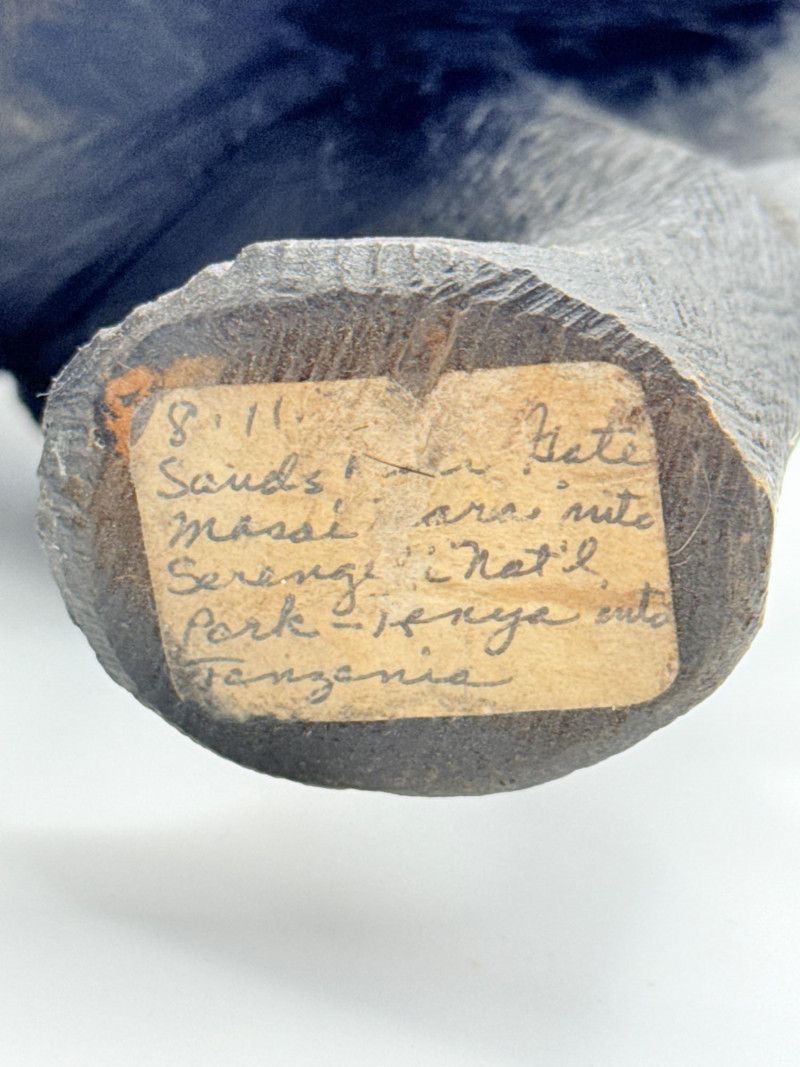 8.11.
Sands Gate
Masai Mara into
Serengeti Nat'l
Park - Kenya into
Tanzania